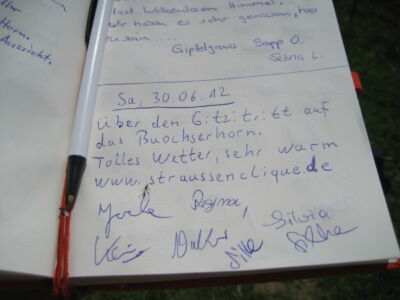 Horn.
Aussicht.
fast wolkenlosem Himmel.
Wir haben es sehr genossen, hier
zu sein....
Gipfelgruss Sepp O.
Selina L.
Sa, 30.06.12
Über den Gitzitritt auf
das Buochserhorn.
Tolles Wetter, sehr warm
www.straussenclique.de
Silvia